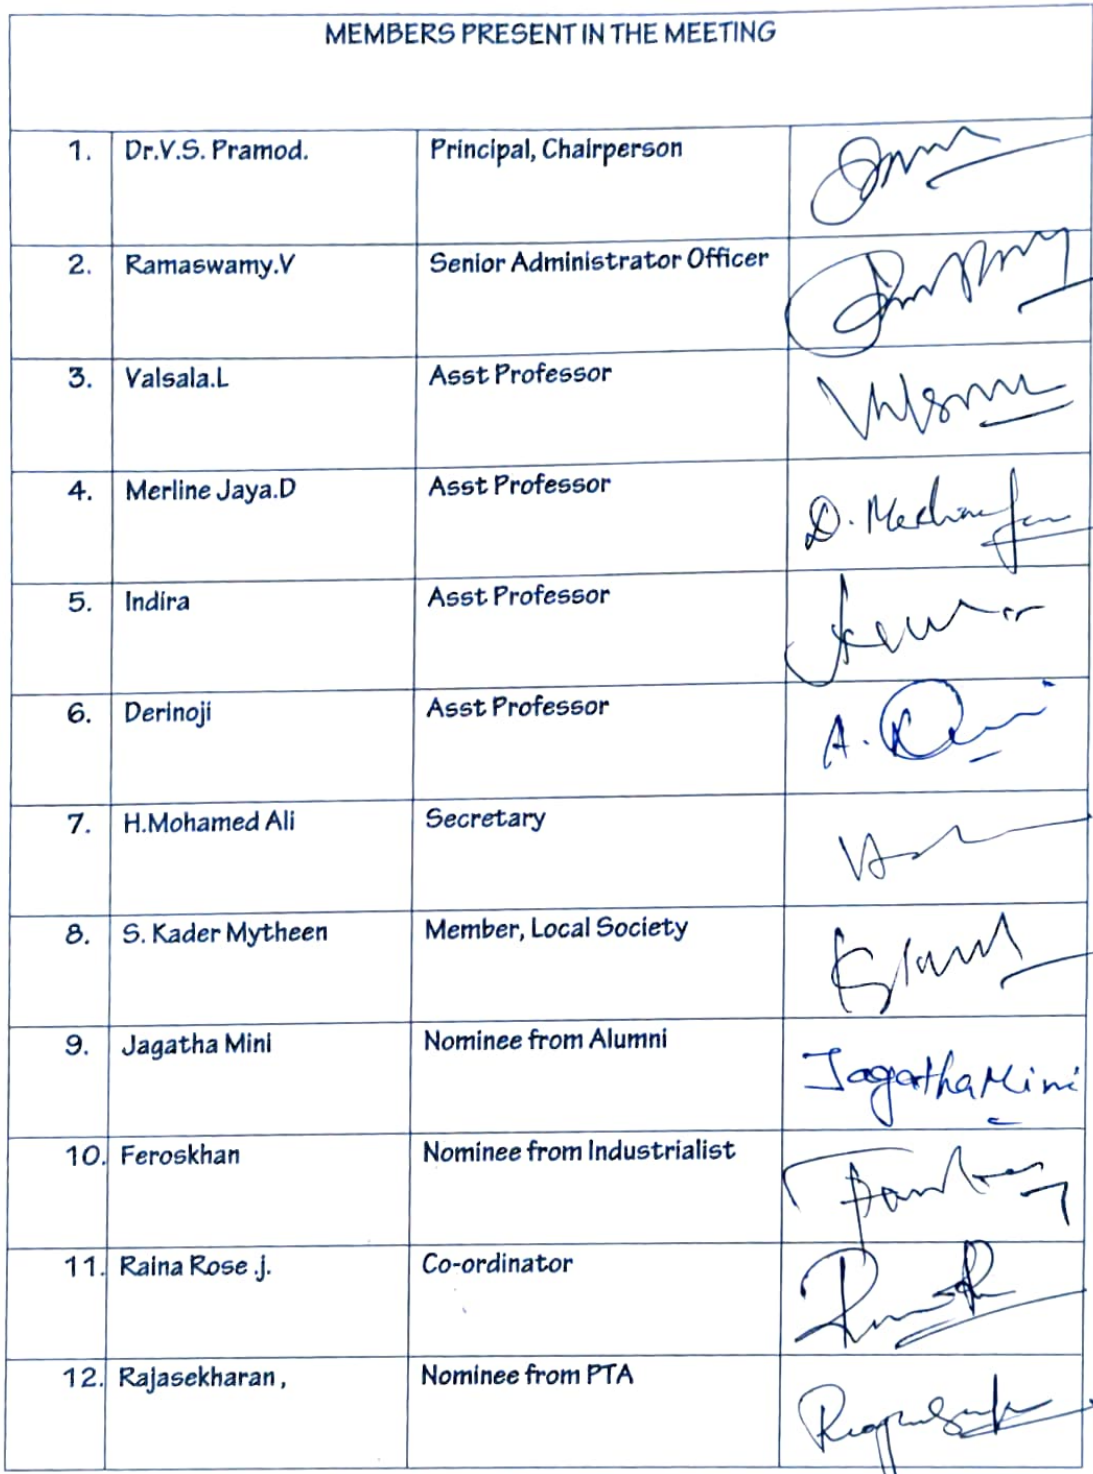 MEMBERS PRESENT IN THE MEETING
1. Dr.V.S. Pramod. Principal, Chairperson
2. Ramaswamy.V Senior Administrator Officer
3. Valsala.L Asst Professor
4. Merline Jaya.D Asst Professor
5. Indira Asst Professor
6. Derinoji Asst Professor
7. H.Mohamed Ali Secretary
8. S. Kader Mytheen Member, Local Society
9. Jagatha Mini Nominee from Alumni Jagatha Mini
10. Feroskhan Nominee from Industrialist
11. Raina Rose .j. Co-ordinator
12. Rajasekharan , Nominee from PTA